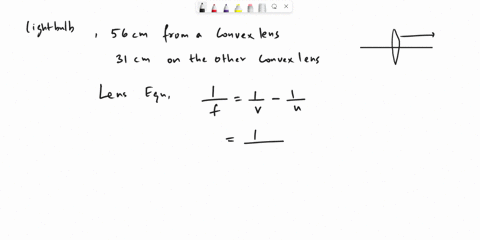 lightbulb , 56 cm from a Convex lens
31 cm on the other Convex lens
Lens Eqn, 1/f = 1/v - 1/u
= 1/